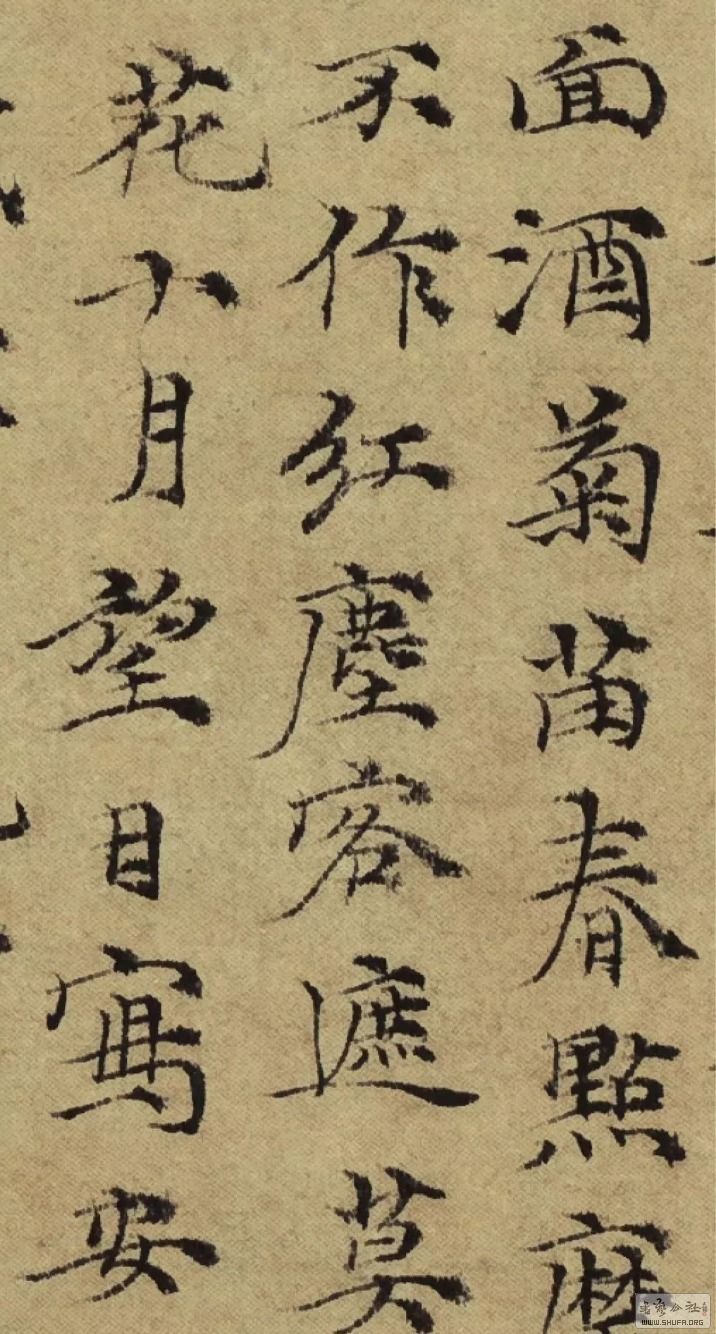 面酒菊苗春點磨
不作紅塵客遮莫
花十月望日寫安
書藝公社
WWW.SHUFA.ORG